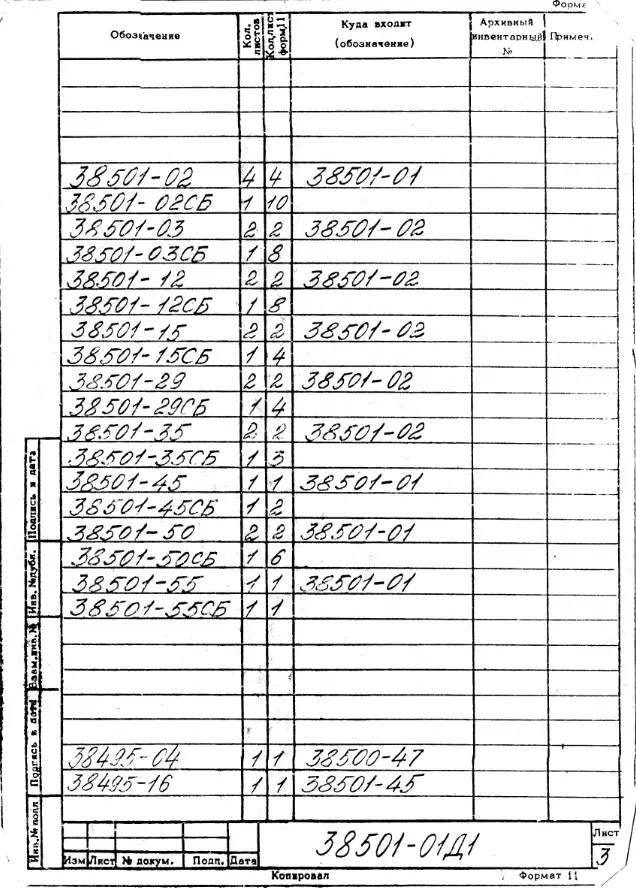 Обозначение Кол. листов Кол.лист форм.11 Куда входит (обозначение) Архивный инвентарный № Примеч.
38501-02 4 4 38501-01
38501-02СБ 1 10
38501-03 2 2 38501-02
38501-03СБ 1 8
38501-12 2 2 38501-02
38501-12СБ 1 8
38501-15 2 2 38501-02
38501-15СБ 1 4
38501-29 2 2 38501-02
38501-29СБ 1 4
38501-35 2 2 38501-02
38501-35СБ 1 3
38501-45 1 1 38501-01
38501-45СБ 1 2
38501-50 2 2 38501-01
38501-50СБ 1 6
38501-55 1 1 38501-01
38501-55СБ 1 1
38495-04 1 1 38500-47
38495-16 1 1 38501-45
Подпись и дата
Инв. № дубл.
Взам. инв. №
Подпись и дата
Инв. № подл
Изм Лист № докум. Подп. Дата
38501-01Д1
Лист
3
Копировал Формат 11